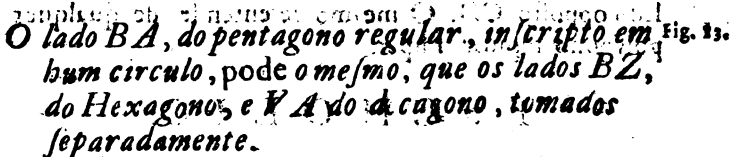 O lado BA, do pentagono regular, inſcripto em Fig. 13.
hum circulo, pode o meſmo, que os lados BZ,
do Hexagono, e VA do decagono, tomados
ſeparadamente.